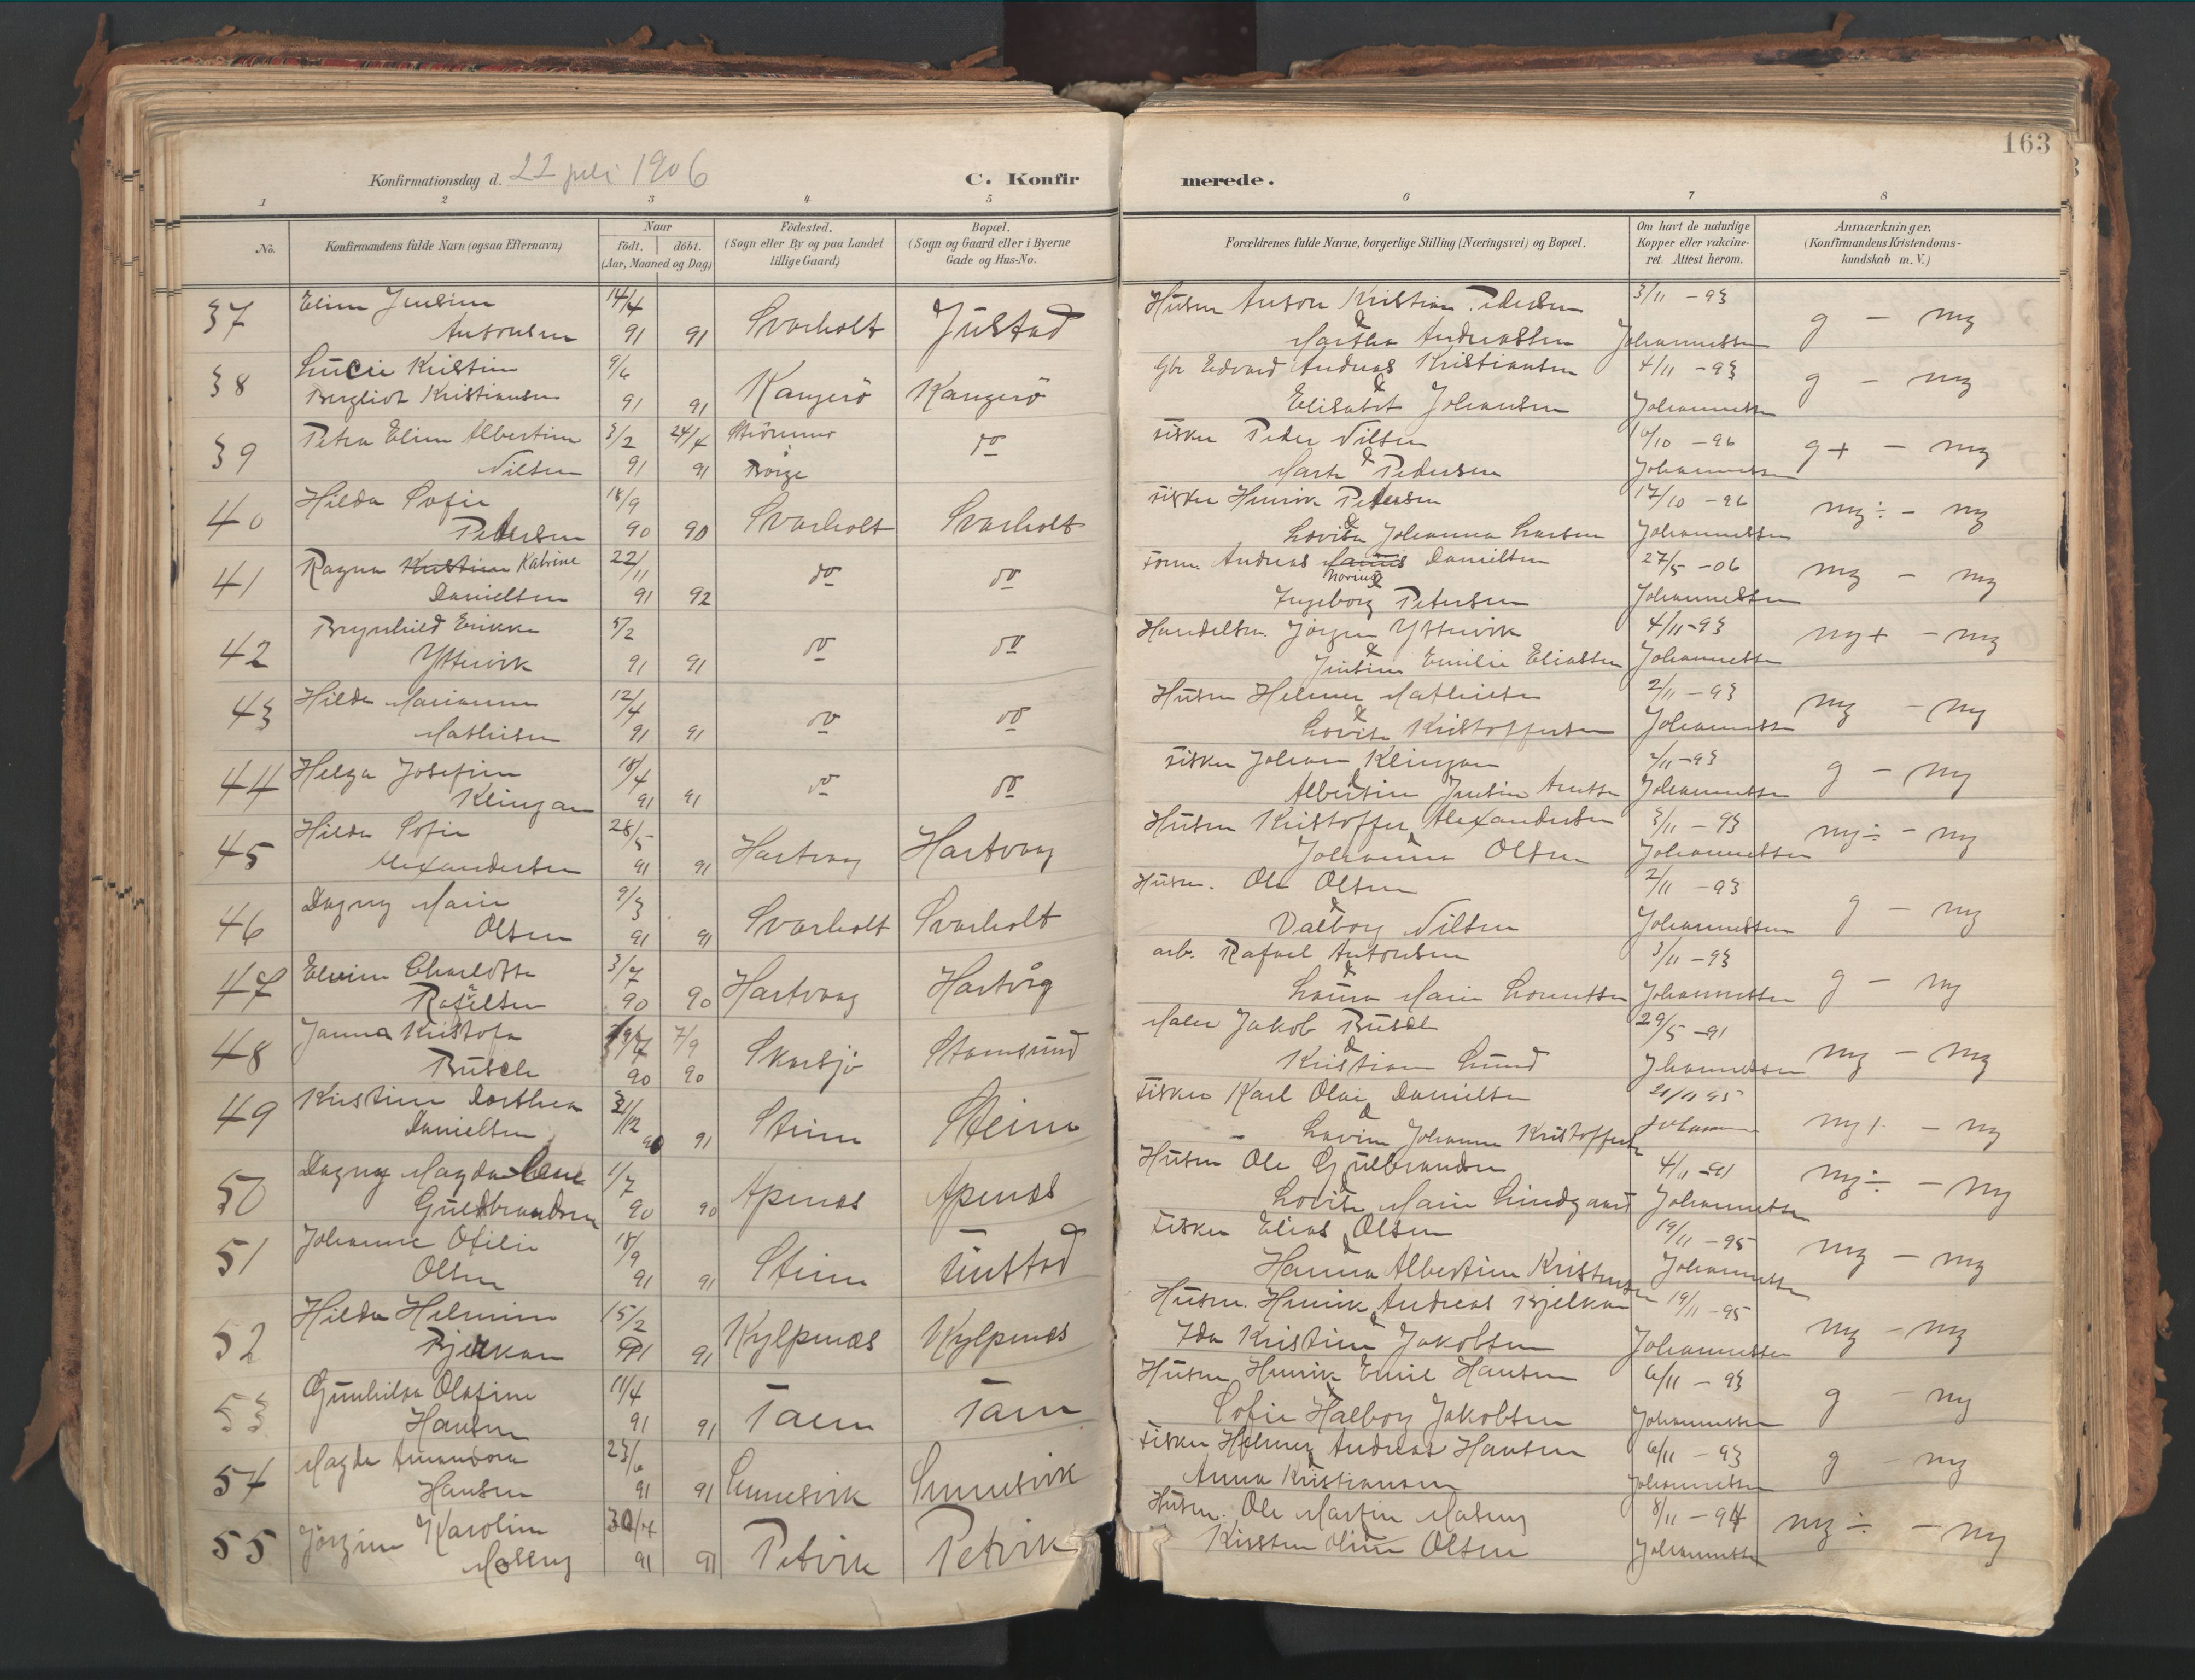 163
Konfirmationsdag d. 22 juli 1906 C. Konfirmerede.
1 2 3 4 5 6 7 8
No. Konfirmandens fulde Navn (ogsaa Efternavn) Naar födt. döbt. (Aar, Maaned og Dag) Födested. (Sogn eller By og paa Landet tillige Gaard) Bopæl. (Sogn og Gaard eller i Byerne Gade og Hus-No. Forældrenes fulde Navne, borgerlige Stilling (Næringsvei) og Bopæl. Om havt de naturlige Kopper eller vakcineret. Attest herom. Anmærkninger. (Konfirmandens Kristendomskundskab m. V.)
37 Eline Jensine 14/4 Husm Anton Kristian Pedersen 3/11 - 93
Antonsen 91 91 Svarholt Justad & Martha Andreassen Johannessen g - mg
38 Lucie Kristine 9/6 Gbr Edvard Andreas Kristiansen 4/11 - 93
Bergliot Kristiansen 91 91 Kangerö Kangerö & Elisabet Johansen Johannessen g - mg
39 Petra Eline Albertine 3/2 24/4 do Fisker Peder Nilsen 16/10 - 96
Nilsen 91 91 Borge & Marte Pedersen Johannessen g+ - mg
40 Hilda Sofie 18/9 Fisker Henrik Petersen 17/10 - 96
Petersen 90 90 Svarholt Svarholt & Lovisa Johanna Larsen Johannessen mg÷ - mg
41 Ragna Kristine Katrine 22/11 do do Andreas Norius Danielsen 27/5 - 06
Danielsen 91 92 & Ingeborg Petersen Johannessen mg - mg
42 Brynhild Erikke 5/2 do do Handelsm. Jörgen Yttervik 4/11 - 93
Yttervik 91 91 & Jensine Emilie Eliassen Johannessen mg+ - mg
43 Hilda Marianne 12/4 do do Husm Helmer Mathisen 2/11 - 93
Mathisen 91 91 & Lovise Kristoffersen Johannessen mg - mg
44 Helga Josefine 18/4 do do Fisker Johan Klingan 2/11 - 93
Klingan 91 91 & Albertine Jentine Antsen Johannessen g - mg
45 Hilda Sofie 28/5 Husm Kristoffer Alexandersen 3/11 - 93
Alexandersen 91 91 Hartvag Hartvag & Johanna Olsen Johannessen mg÷ - mg
46 Dagny Marie 9/3 Husm. Ole Olsen 2/11 - 93
Olsen 91 91 Svarholt Svarholt & Valborg Nilsen Johannessen g - mg
47 Elvine Charlotte 3/7 arb. Rafael Antonsen 3/11 - 93
Rafaelsen 90 90 Hartvag Hartvåg & Laura Marie Johannessen g - mg
48 Janna Kristofa 7/9 Maler Jakob Busch 29/5 - 91
Busch 90 90 Skarsjö Stamsund & Kristiane Lund Johannessen mg - mg
49 Kristine Dorthea 31/12 Fisker Karl Olai Danielsen 21/11 95
Danielsen 90 91 Steine Steine & Lovine Johanna Kristoffersen mg+ - mg
50 Dagny Magdalene 1/7 Husm Ole Gulbrandsen 4/11 - 91
Guldbrandsen 90 90 Apenæs Apenæs & Lovise Marie Lindgaard Johannessen mg÷ - mg
51 Johanne Otilie 18/9 Fisker Elias Olsen 19/11 - 95
Olsen 91 91 Steine & Hanna Albertine Kristensen Johannessen mg - mg
52 Hilda Helmine 15/2 Husm. Henrik Andreas Bjelkan 19/11 - 95
Bjelkan 91 91 Kylpenæs Kylpenæs & Ida Kristine Jakobsen Johannessen mg - mg
53 Gunhilda Olafine 11/4 Husm Henrik Emil Hansen 6/11 - 93
Hansen 91 91 & Sofie Jakobsen Johannessen g - mg
54 Magda Amandora 23/6 Fisker Helmer Andreas Hansen 6/11 - 93
Hansen 91 91 Sennesvik Sennesvik & Anna Kristiansen Johannessen g - mg
55 Jörgine Karoline 30/4 Husm. Ole Martin Moseng 8/11 - 94
Moseng 91 91 Petvik Petvik & Kirsten Oline Olsen Johannessen mg÷ - mg